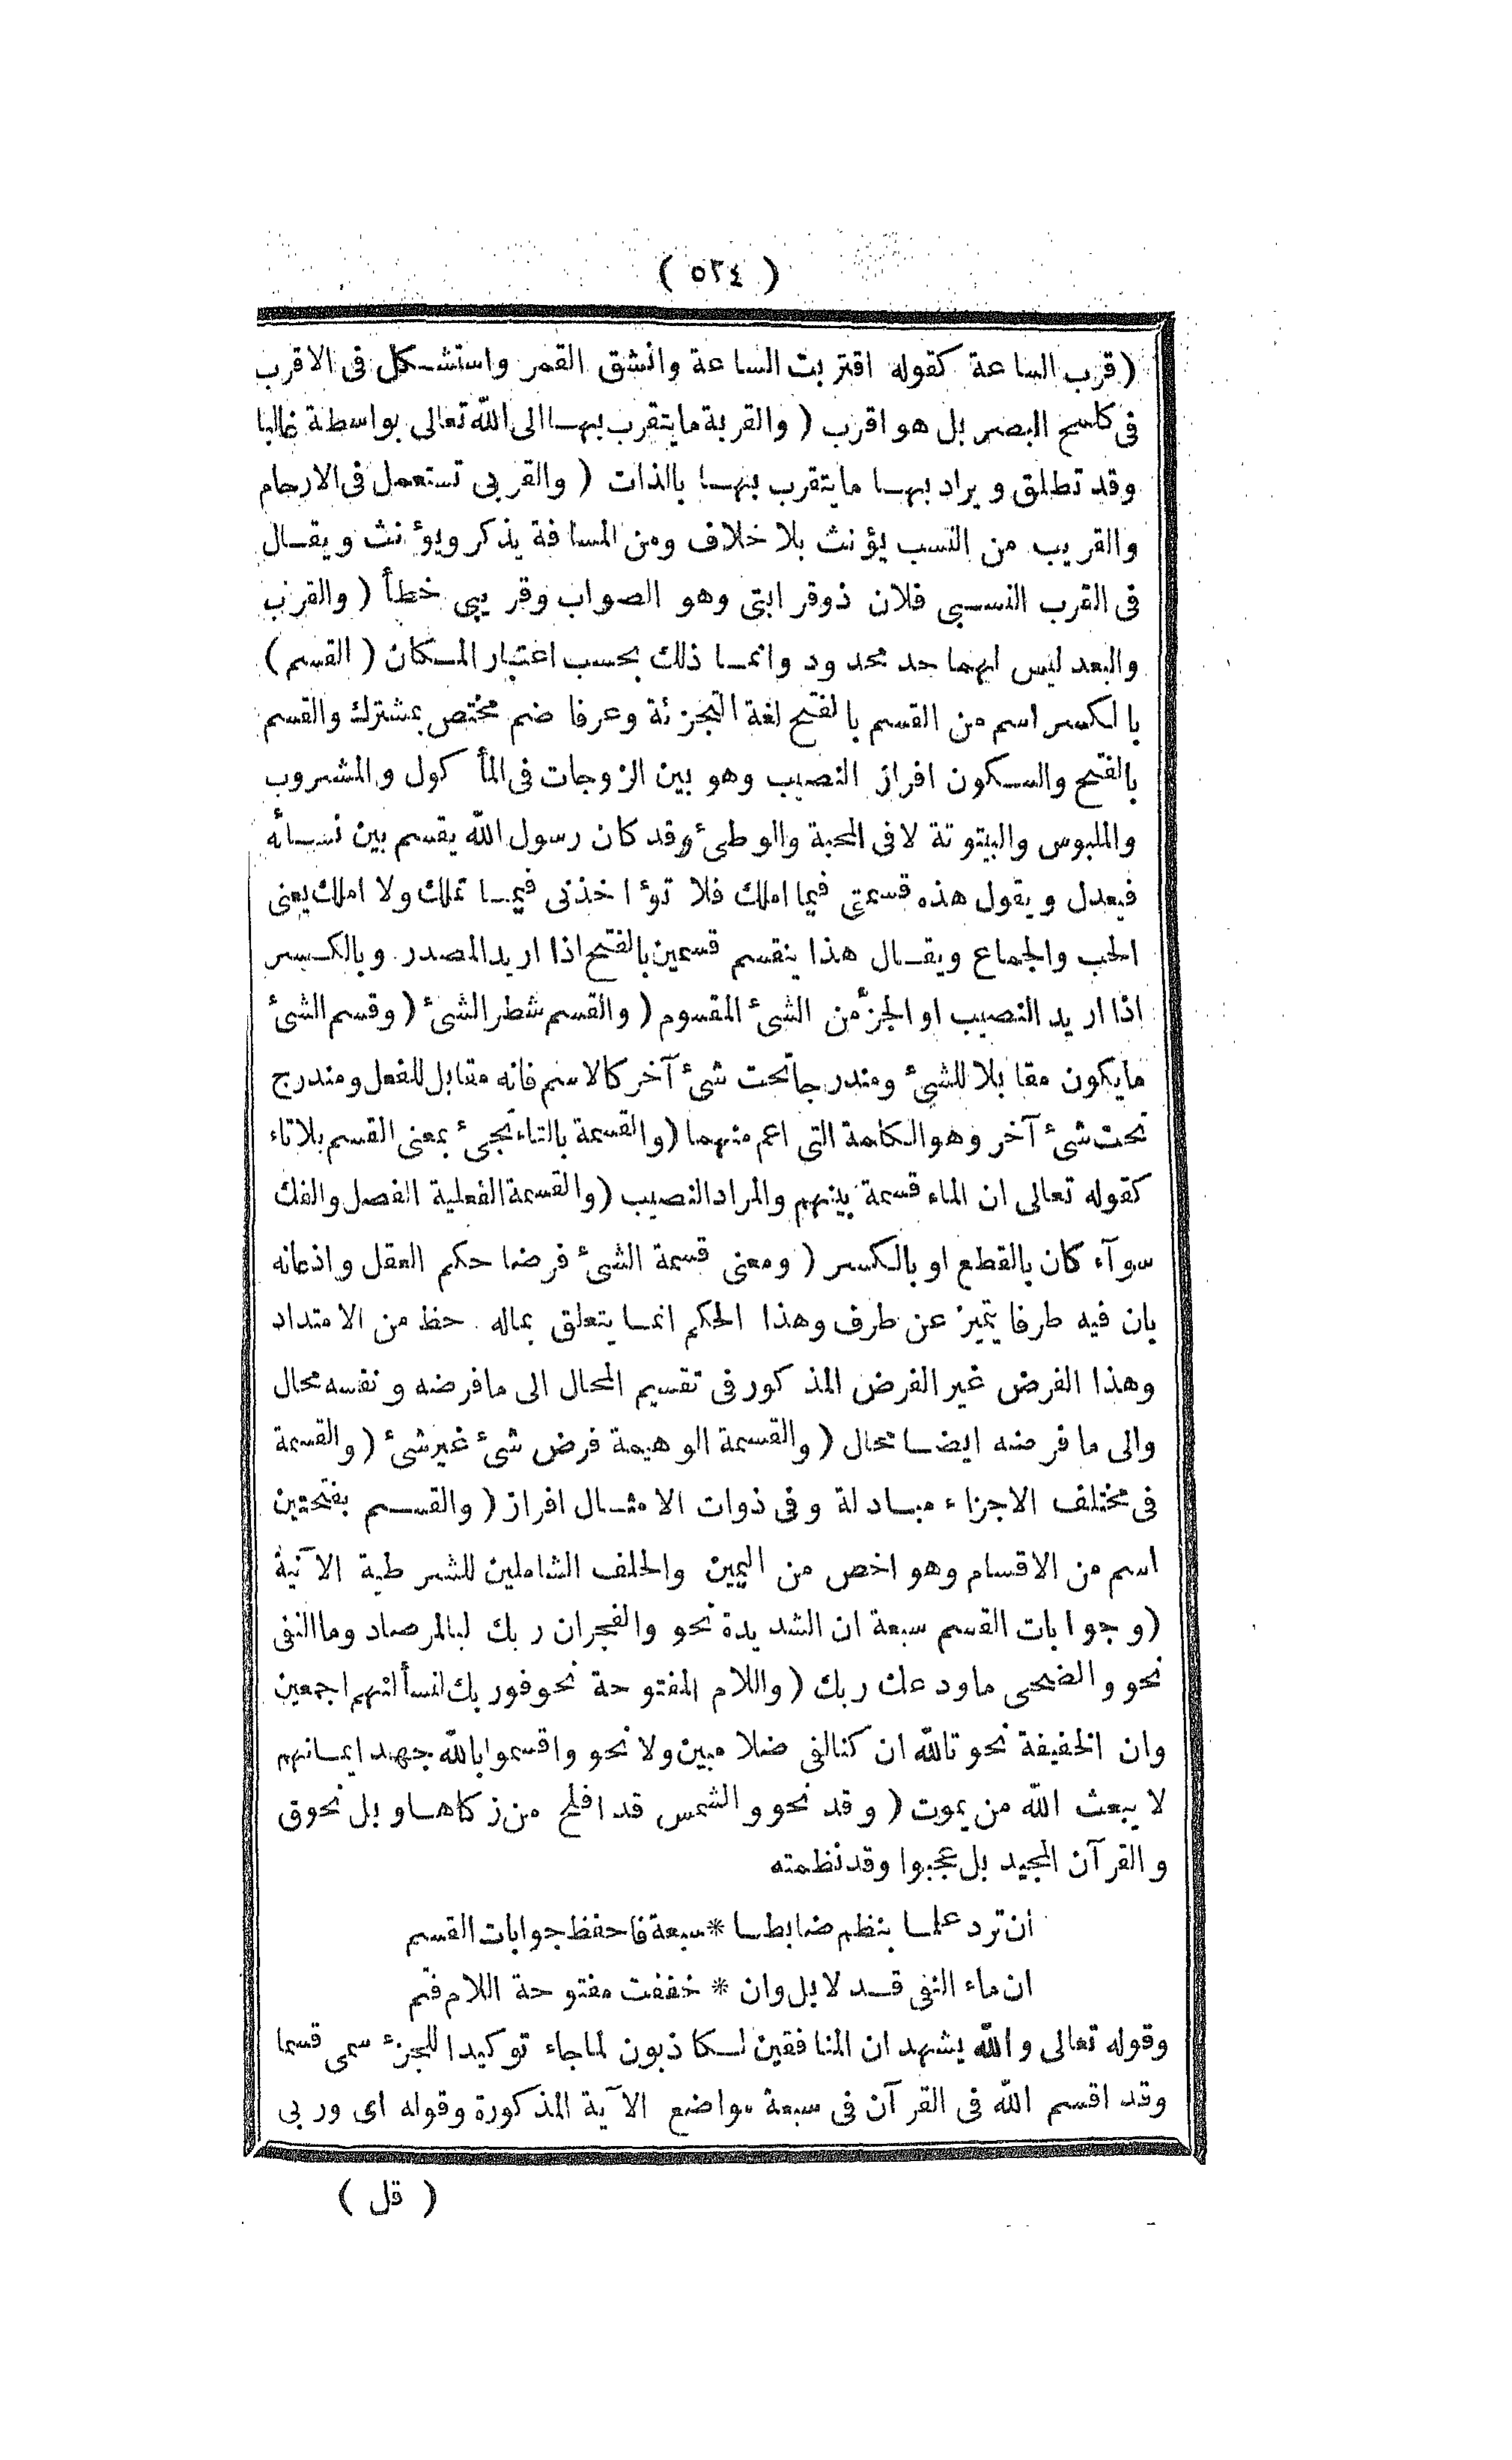 ( ٥٢٤ )
(قرب الساعة كقوله اقتربت الساعة وانشق القمر واستشكل فى الاقرب
فى كلمح البصر بل هو اقرب ( والقربة مايتقرب بها الى الله تعالى بواسطة غالبا
وقد تطلق ويراد بها مايتقرب بها بالذات ( والقربى تستعمل فى الارحام
والقريب من النسب يؤنث بلا خلاف ومن المسافة يذكر ويؤنث ويقال
فى القرب النسبى فلان ذوقرابتى وهو الصواب وقريبى خطأ ( والقرب
والبعد ليس لهما حد محدود وانما ذلك بحسب اعتبار المكان ( القسم )
بالكسر اسم من القسم بالفتح لغة التجزئة وعرفا ضم مختص بمشترك والقسم
بالفتح والسكون افراز النصيب وهو بين الزوجات فى المأكول والمشروب
والملبوس والبيتوتة لا فى المحبة والوطئ وقد كان رسول الله يقسم بين نسائه
فيعدل ويقول هذه قسمتى فيما املك فلا تؤاخذنى فيما تملك ولا املك يعنى
الحب والجماع ويقال هذا ينقسم قسمين بالفتح اذا اريد المصدر وبالكسر
اذا اريد النصيب او الجزء من الشئ المقسوم ( والقسم شطر الشئ ( وقسم الشئ
مايكون مقابلا للشئ ومندرجا تحت شئ آخر كالاسم فانه مقابل للفعل ومندرج
تحت شئ آخر وهو الكلمة التى اعم منهما (والقسمة بالتاء تجئ بمعنى القسم بلاتاء
كقوله تعالى ان الماء قسمة بينهم والمراد النصيب (والقسمة الفعلية الفصل والفك
سوآء كان بالقطع او بالكسر ( ومعنى قسمة الشئ فرضا حكم العقل واذعانه
بان فيه طرفا يتميز عن طرف وهذا الحكم انما يتعلق بماله حظ من الامتداد
وهذا الفرض غير الفرض المذكور فى تقسيم المحال الى مافرضه ونفسه محال
والى ما فرضه ايضا محال ( والقسمة الوهيمة فرض شئ غير شئ ( والقسمة
فى مختلف الاجزاء مبادلة وفى ذوات الامثال افراز ( والقسم بفتحتين
اسم من الاقسام وهو اخص من اليمين والحلف الشاملين للشرطية الآتية
(وجوابات القسم سبعة ان الشديدة نحو والفجر ان ربك لبالمرصاد وما النفى
نحو والضحى ماودعك ربك ( واللام المفتوحة نحو فوربك لنسألنهم اجمعين
وان الخفيفة نحو تالله ان كنا لفى ضلا مبين ولا نحو واقسموا بالله جهد ايمانهم
لا يبعث الله من يموت ( وقد نحو والشمس قد افلح من زكاها وبل نحو ق
والقرآن المجيد بل عجبوا وقد نظمته
ان ترد علما بنظم ضابطا * سبعة فاحفظ جوابات القسم
ان ماء النفى قد لا بل وان * خففت مفتوحة اللام فتم
وقوله تعالى والله يشهد ان المنافقين لكاذبون لما جاء توكيدا للجزء سمى قسما
وقد اقسم الله فى القرآن فى سبعة مواضع الآية المذكورة وقوله اى وربى
( قل )